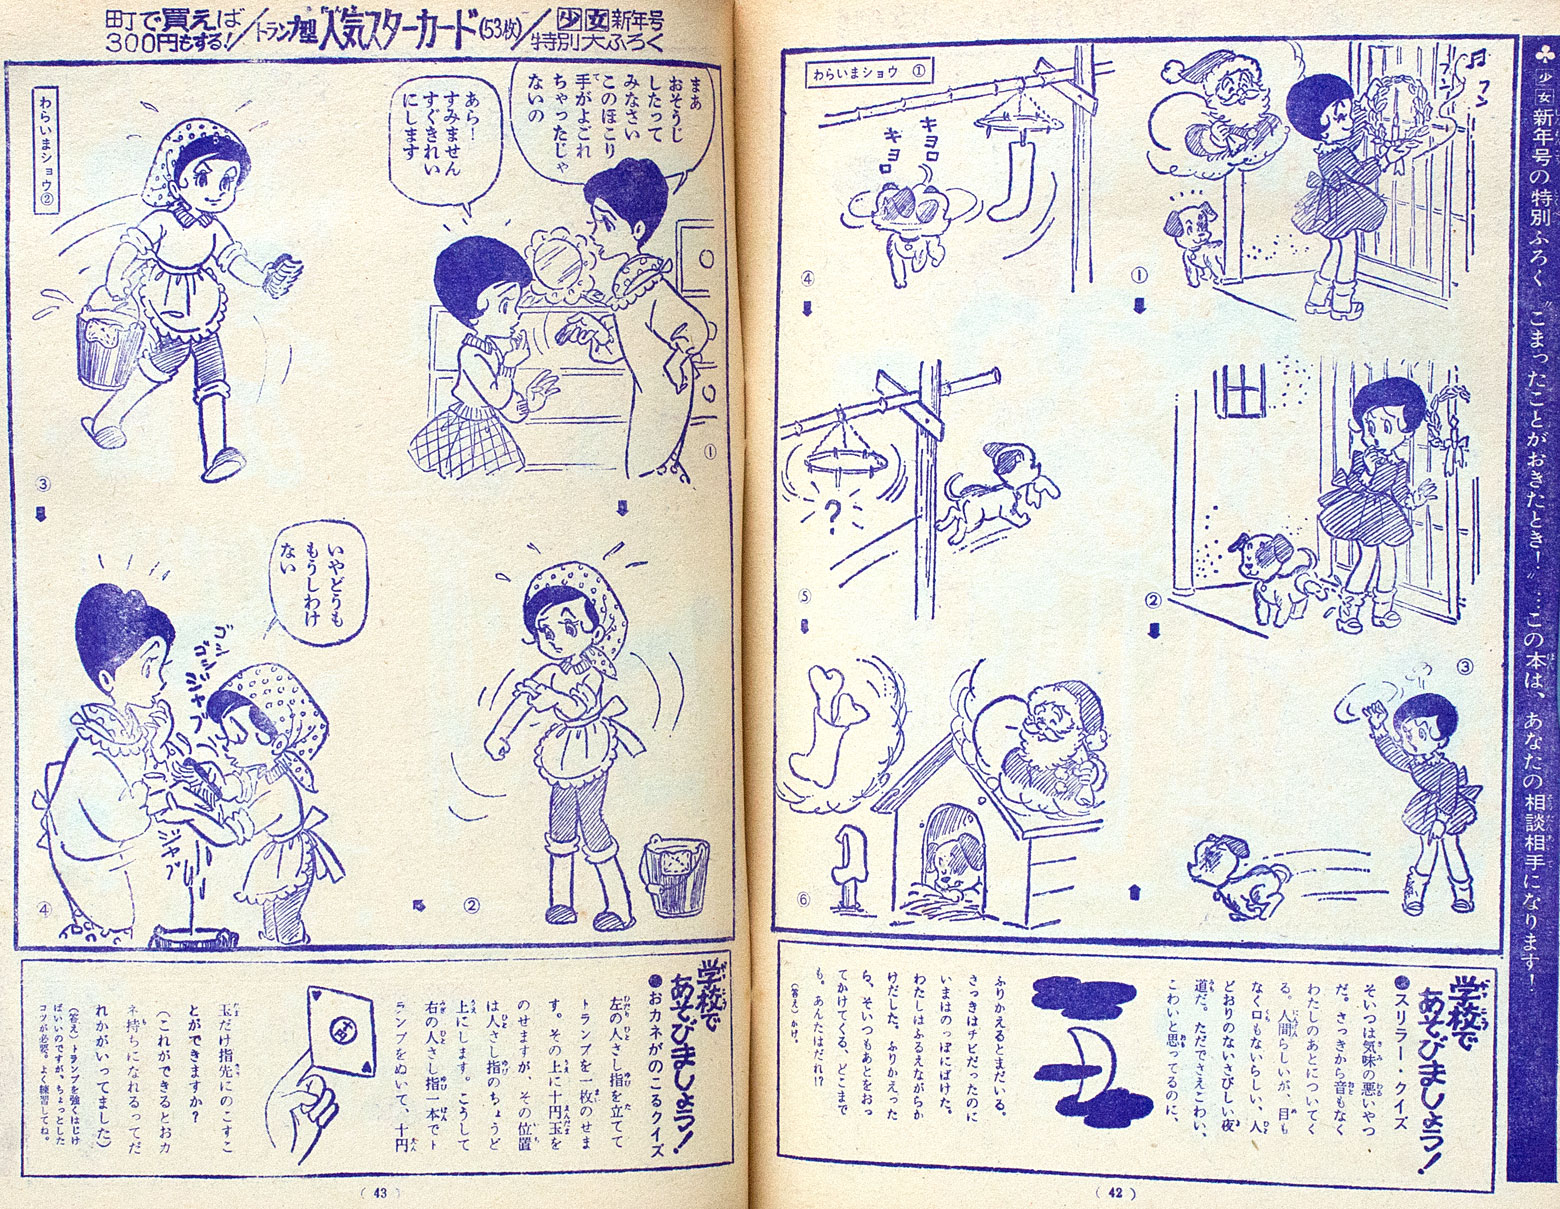 ♣少女新年号の特別ふろく〝こまったことがおきたとき!〟…この本は、あなたの相談相手になります!
わらいまショウ ①
♫
フン
フン
①
②
③
キョロ
キョロ
④
?
⑤
⑥
学校で
あそびましょう!
●スリラー・クイズ
そいつは気味の悪いやつ
だ。さっきから音もなく
わたしのあとについてく
る。人間らしいが、目も
なく口もないらしい、人
どおりのないさびしい夜
道だ。ただでさえこわい、
こわいと思ってるのに、
ふりかえるとまだいる。
さっきはチビだったのに
いまはのっぽにばけた。
わたしはふるえながらか
けだした。ふりかえった
ら、そいつもあとをおっ
てかけてくる、どこまで
も。あんたはだれ!?
(答え) かげ。
( 42 )
町で買えば
300円もする!
トランプ型人気スターカード(53枚)
少女新年号
特別大ふろく
わらいまショウ ②
まあ
おそうじ
したって
みなさい
このほこり
手がよごれ
ちゃったじゃ
ないの
あら!
すみません
すぐきれい
にします
①
②
③
いやどうも
もうしわけ
ない
ゴシ
ゴシ
ジャブ
ジャブ
④
学校で
あそびましょう!
●おカネがのこるクイズ
左の人さし指を立てて
トランプを一枚のせま
す。その上に十円玉を
のせますが、その位置
は人さし指のちょうど
上にします。こうして
右の人さし指一本でト
ランプをぬいて、十円
玉だけ指先にのこすこ
とができますか?
(これができるとおカ
ネ持ちになれるってだ
れかがいってました)
(答え) トランプを強くはじけ
ばいいのですが、ちょっとした
コツが必要。よく練習してね。
( 43 )